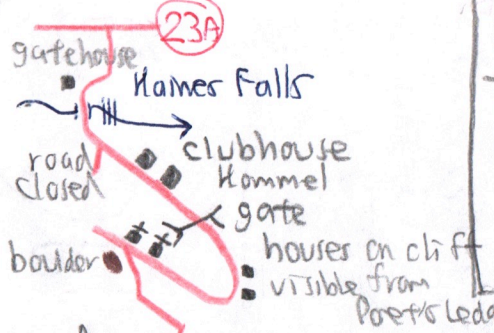 23A
gatehouse
Hainer Falls
road
closed
clubhouse
Hommel
gate
boulder
houses on cliff
visible from